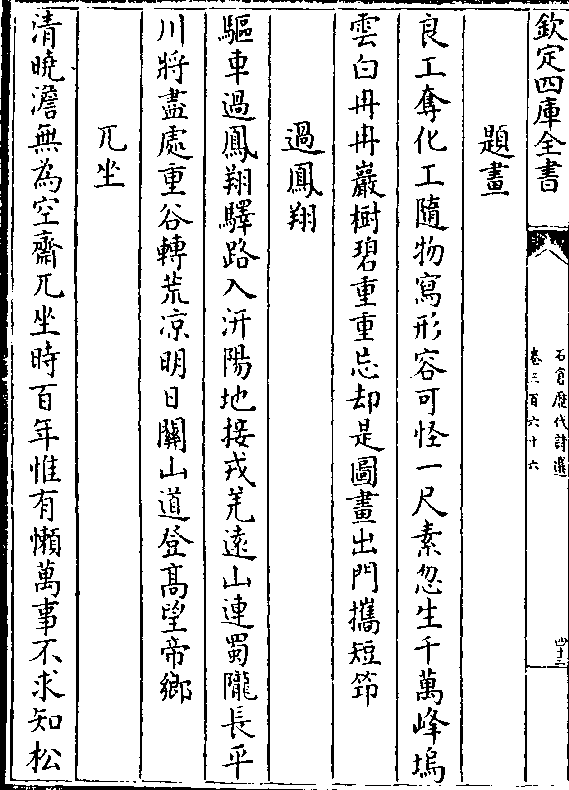 欽定四庫全書
石倉歷代詩選
卷三百六十六
四十三
題畫
良工奪化工隨物寫形容可怪一尺素忽生千萬峰塢
雲白冉冉巖樹碧重重忘却是圖畫出門攜短筇
過鳳翔
驅車過鳳翔驛路入汧陽地接戎羌遠山連蜀隴長平
川將盡處重谷轉荒凉明日關山道登髙望帝鄉
兀坐
清曉澹無為空齋兀坐時百年惟有懶萬事不求知松